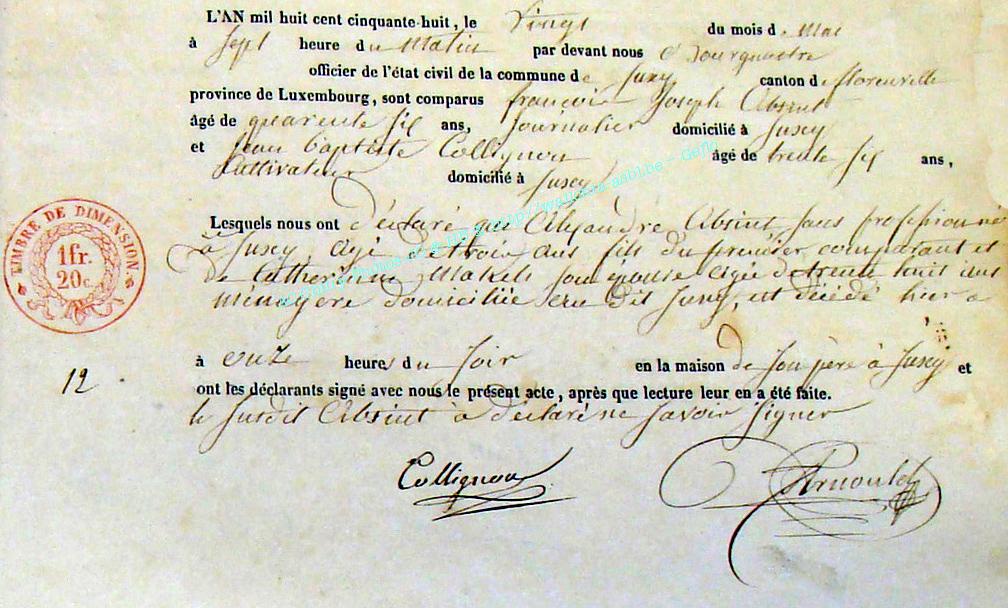 L'AN mil huit cent cinquante-huit, le Vingt du mois de Mai
à Sept heure du Matin par devant nous
officier de l'état civil de la commune de Jusey canton de florenville
province de Luxembourg, sont comparus francois Joseph Absint
âgé de quarente six ans, Journalier domicilié à Jusey
et Jean baptiste Collignon âgé de trente six ans,
Cultivateur domicilié à Jusey
Lesquels nous ont déclaré que Alexandre Absint, sans profession né
à Jusey agé de trois ans fils du premier comparant et
de Catherine son epouse agée de trente huit ans
menagère domiciliée au dit Jusey, est décédé hier
à onze heures du soir en la maison de son père à Jusey et
ont les déclarants signé avec nous le présent acte, après que lecture leur en a été faite.
le susdit Absint à déclaré ne savoir signer
Collignon
TIMBRE DE DIMENSION
1fr.
20c.
12